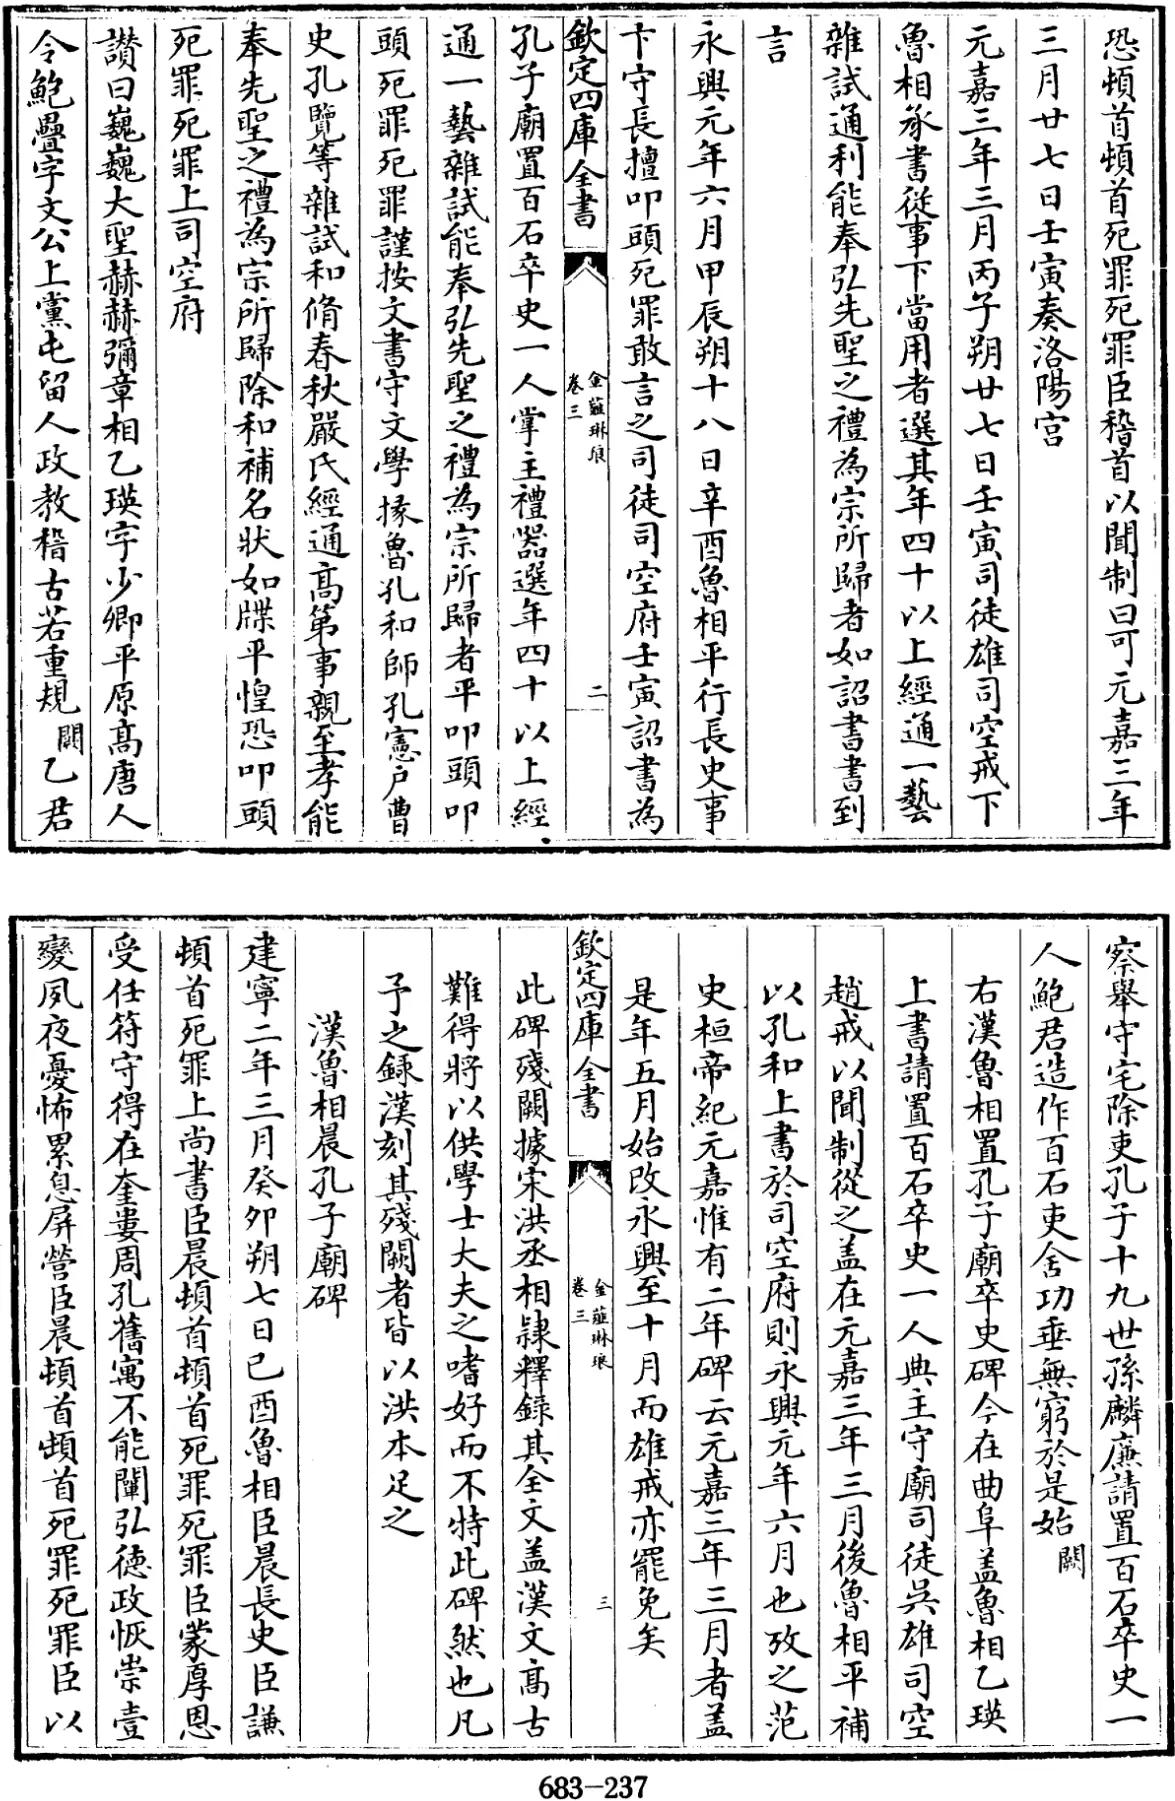 恐頓首頓首死罪死罪臣稽首以聞制曰可元嘉三年
三月廿七日壬寅奏洛陽宫
元嘉三年三月丙子朔廿七日壬寅司徒雄司空戒下
魯相承書從事下當用者選其年四十以上經通一藝
雜試通利能奉弘先聖之禮為宗所歸者如詔書書到
言
永興元年六月甲辰朔十八日辛酉魯相平行長史事
卞守長擅叩頭死罪敢言之司徒司空府壬寅詔書為
欽定四庫全書
金薤琳琅
卷三
二
孔子廟置百石卒史一人掌主禮器選年四十以上經
通一藝雜試能奉弘先聖之禮為宗所歸者平叩頭叩
頭死罪死罪謹按文書守文學掾魯孔和師孔憲户曹
史孔覽等雜試和脩春秋嚴氏經通高第事親至孝能
奉先聖之禮為宗所歸除和補名狀如牒平惶恐叩頭
死罪死罪上司空府
讃曰巍巍大聖赫赫彌章相乙瑛字少卿平原高唐人
令鮑疊字文公上黨屯留人政教稽古若重規闕乙君
察舉守宅除吏孔子十九世孫麟廉請置百石卒史一
人鮑君造作百石吏舍功垂無窮於是始闕
右漢魯相置孔子廟卒史碑今在曲阜盖魯相乙瑛
上書請置百石卒史一人典主守廟司徒吳雄司空
趙戒以聞制從之盖在元嘉三年三月後魯相平補
以孔和上書於司空府則永興元年六月也攷之范
史桓帝紀元嘉惟有二年碑云元嘉三年三月者盖
是年五月始改永興至十月而雄戒亦罷免矣
欽定四庫全書
金薤琳琅
卷三
三
此碑殘闕據宋洪丞相隷釋錄其全文盖漢文高古
難得將以供學士大夫之嗜好而不特此碑然也凡
予之録漢刻其殘闕者皆以洪本足之
漢魯相晨孔子廟碑
建寧二年三月癸卯朔七日己酉魯相臣晨長史臣謙
頓首死罪上尚書臣晨頓首頓首死罪死罪臣蒙厚恩
受任符守得在奎婁周孔舊寓不能闡弘德政恢崇壹
變夙夜憂怖累息屏營臣晨頓首頓首死罪死罪臣以
683-237